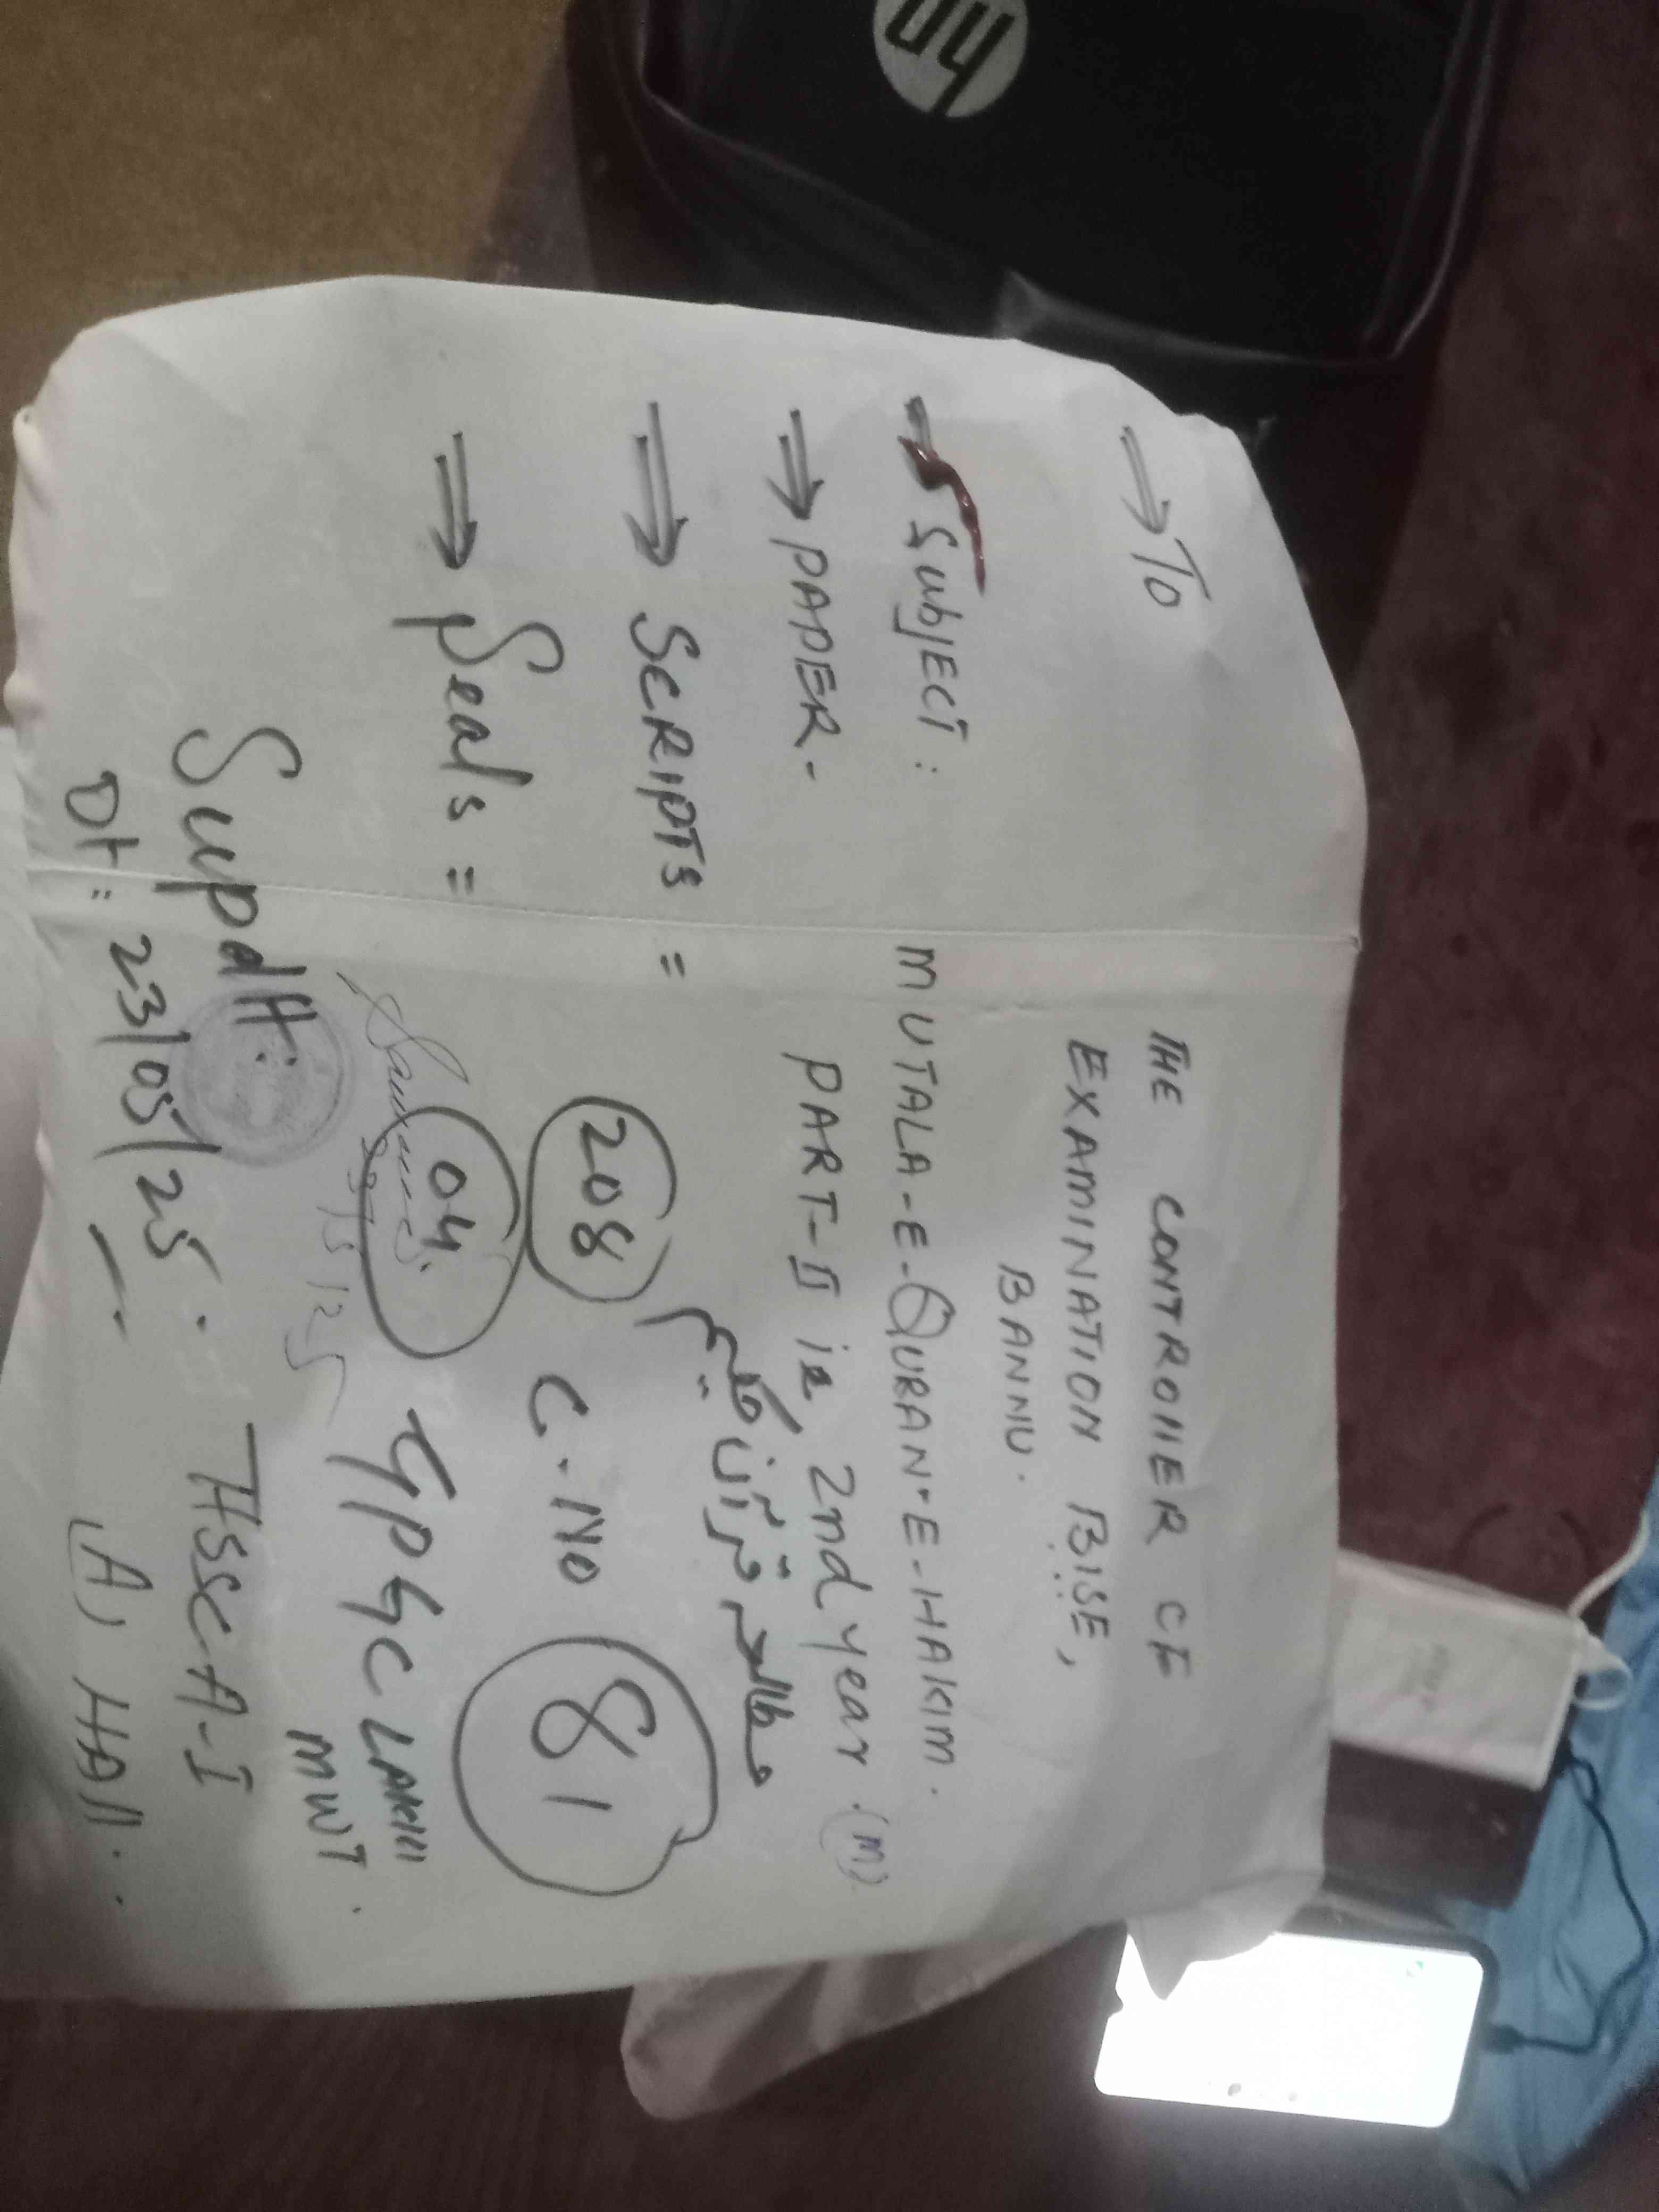 hp
⇒ To
THE CONTROllER OF
EXAMINATION BISE,
BANNU.
SubJECT: MUTALA-E-QURAN-E-HAKIM.
→ PAPER- PART-II ie 2nd year. (M)
مطالعہ قرآن حکیم
⇒ SCRIPTS = 208 C-No 81
⇒ Seals = 04 GPGC LAKKI
MWT.
Supdtt. HSSC A-I
Dt= 23/05/25. (A) HAll.